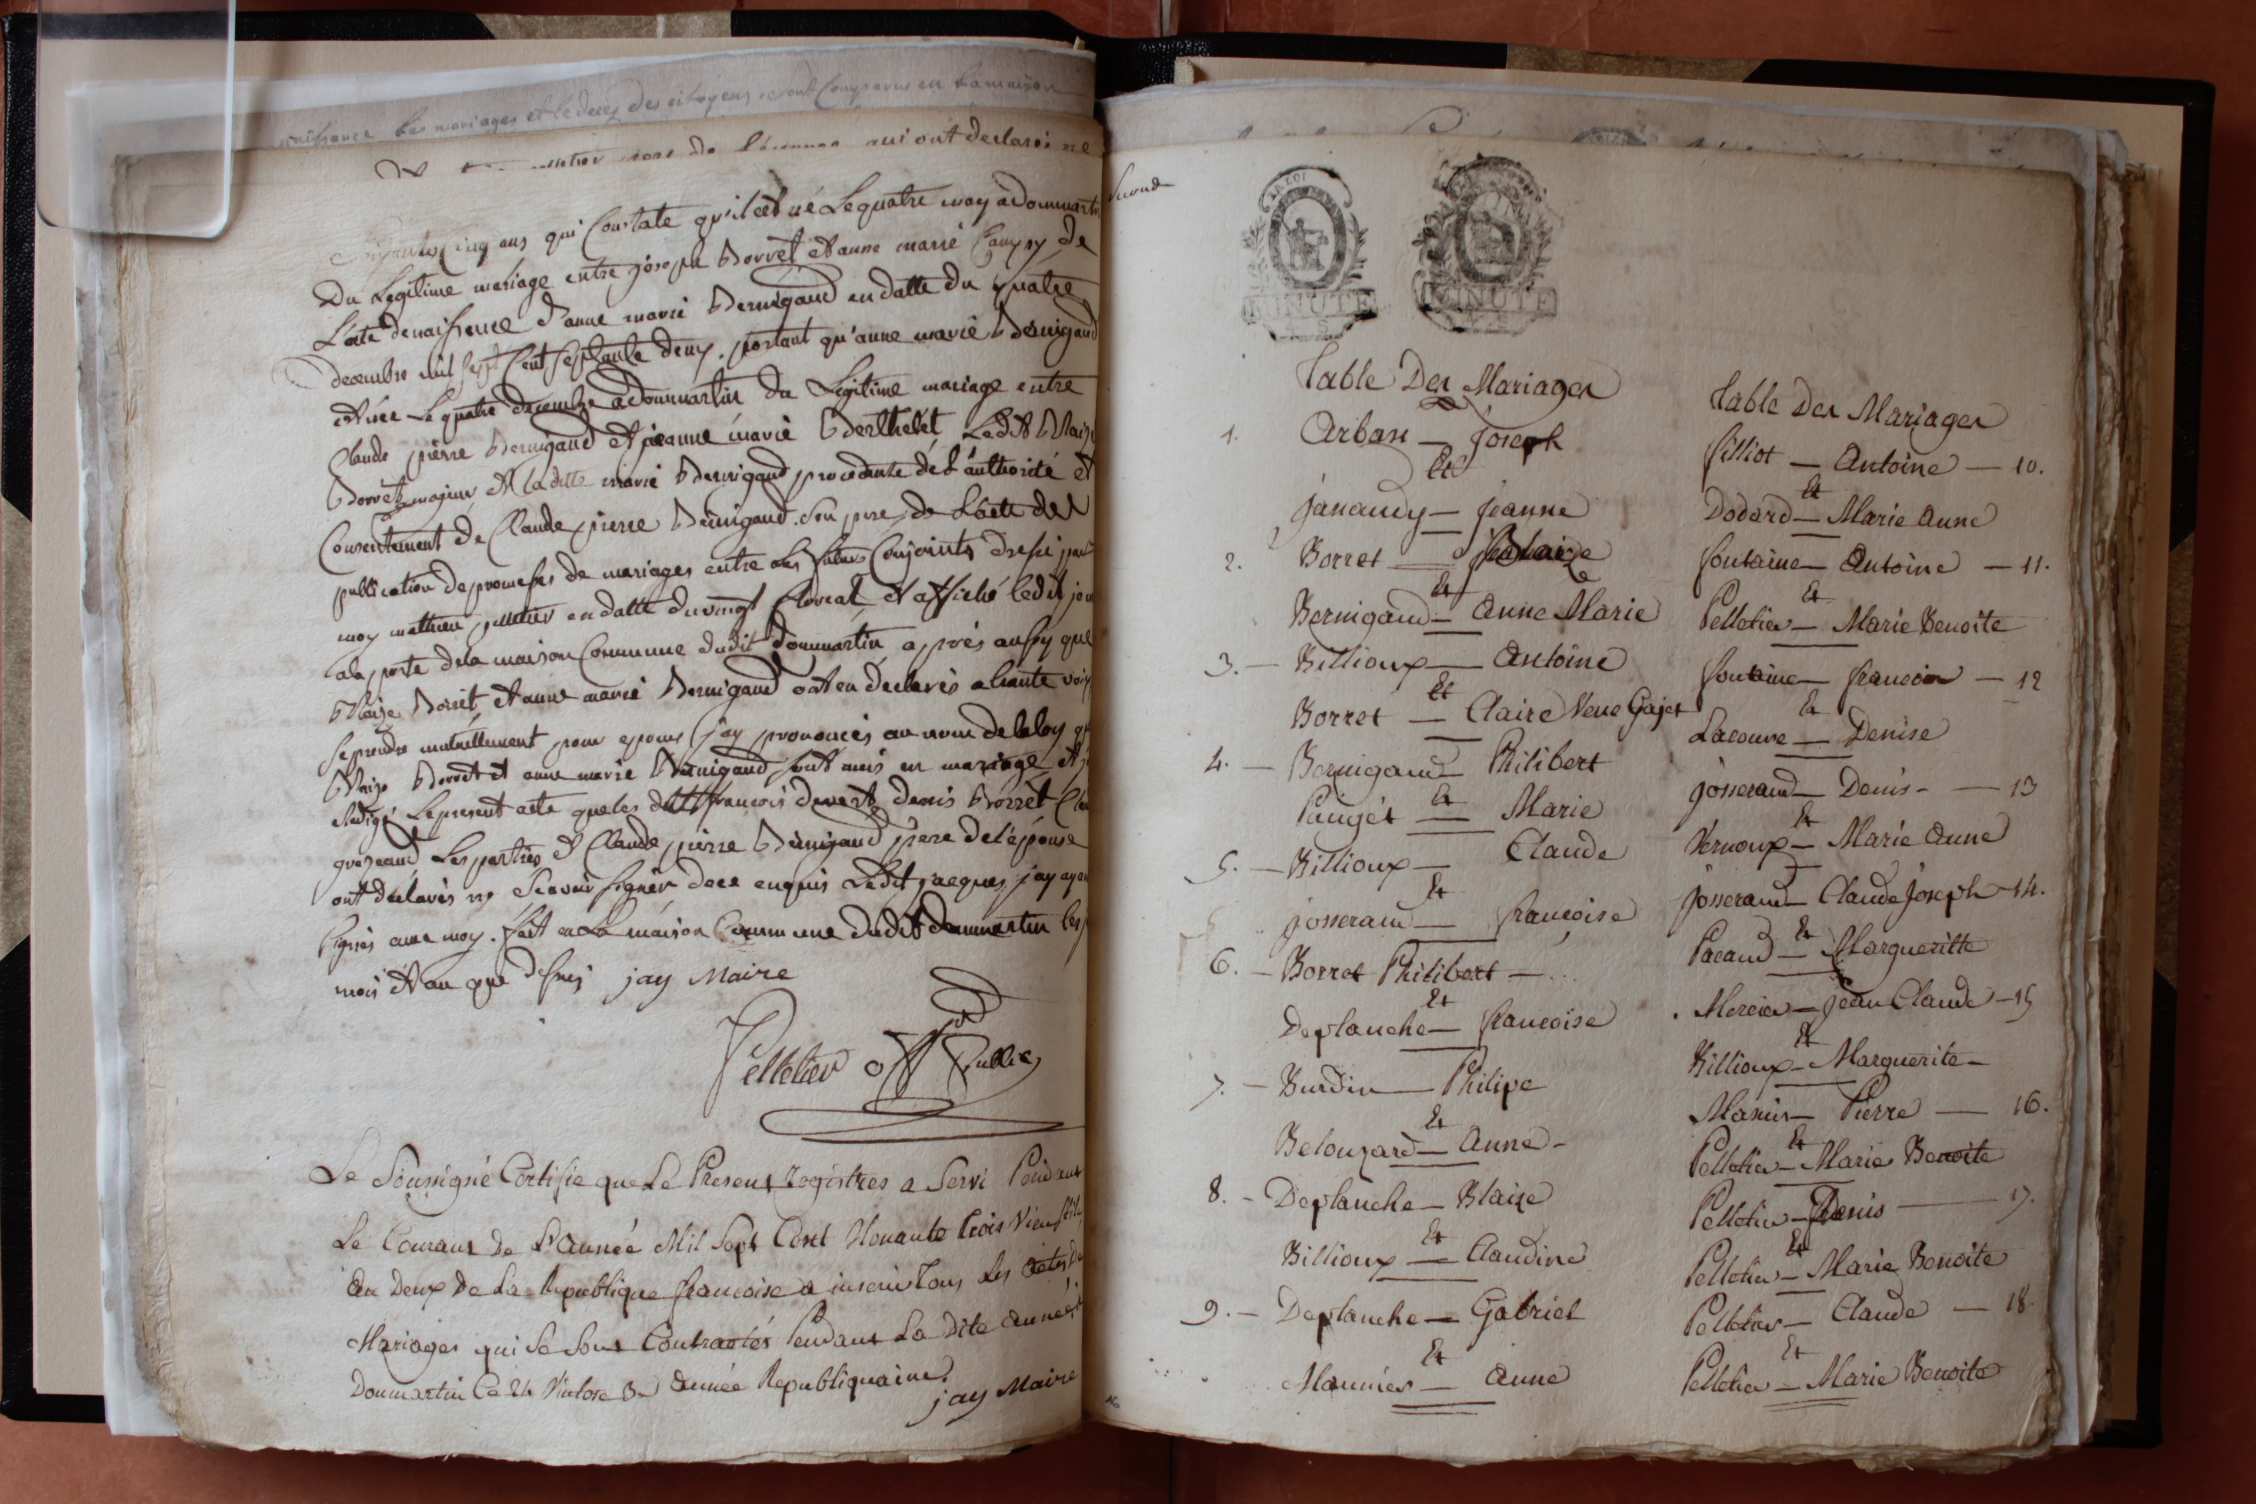 naissance les mariages et le deces des citoyens sont Comparus en la maison
qui ont declarés ne
Cinq ans qui Constate qu'il est né Le quatre may a Dommartin
Du Legitime mariage entre joseph Borret et anne marie
L'acte de naissence d'anne marie Bernigaud en datte du quatre
decembre mil sept Cent septante deux. portant qu'anne marie Bernigaud
et née Le quatre decembre a Dommartin du Legitime mariage entre
Claude pierre Bernigaud et jeanne marie Berthelet Ledit Blaize
Borret majeur et la ditte marie Bernigaud procedante de L'authorité et
Consentement de Claude pierre Bernigaud son pere, de L'acte de
publication de promesses de mariages entre les futurs Conjoints dressé par
moy mathieu pelletier en datte du vingt floreal et affiché ledit jour
a la porte de la maison Commune dudit Dommartin apres aussy que
Blaize Borret et anne marie Bernigaud ont eu declarés a haute voix
se prendre mutuellement pour epoux j'ay prononcés au nom de la loy que
Blaize Borret et anne marie Bernigaud sont unis en mariage et j'ai
redigé Le present acte que les dits francois devert denis Borret
Les parties et Claude pierre Bernigaud pere de l'epouse
ont declarés ne Scavoir signer de ce enquis Ledit jacques jay ayant
signés avec moy. fait en La maison Commune dudit dommartin les
mois et an que dessus jay Maire
Pelletier off Public
Le Soussigné Certifie que Le Present registres a Servi Pendant
Le Courant de L'année Mil Sept Cent Nonante trois Vieux stile
an Deux De La Republique francoise a inscrit Tous Les actes de
Mariages qui Se Sont Contractés Pendant La Dite année
Dommartin Ce 24 Nivose 3e année Republiquaine.
jay Maire
MINUTE
MINUTE
Table Des Mariages
1. Arban — Joseph
Et
Janaudy — Jeanne
2. Borret — Blaize
Et
Bernigaud — Anne Marie
3. — Billioux — Antoine
Et
Borret — Claire Veuve Gajet
4. — Bernigaud — Philibert
Et
Pauget — Marie
5. — Billioux — Claude
Et
josserand — francoise
6. — Borret Philibert —
Et
Deplanche — francoise
7. — Burdin — Philipe
Et
Belouzard — Anne -
8. - Deplanche — Blaize
Et
Billioux — Claudine
9. — Deplanche — Gabriel
Et
Maunier — Anne
Table Des Mariages
filliot — Antoine — 10.
Et
Dodard — Marie Anne
fontaine — Antoine — 11.
Et
Pelletier — Marie Benoite
fontaine — francois — 12
Et
Lacouve — Denise
josserand — Denis - — 13
Et
Vernoux — Marie Anne
josserand — Claude Joseph — 14.
Et
Pacaud — Margueritte
Mercier — Jean Claude — 15
Et
Billioux — Marguerite —
Manier — Pierre — 16.
Et
Pelletier — Marie Benoite
Pelletier — Denis — 17.
Et
Pelletier — Marie Benoite
Pelletier — Claude — 18
Et
Pelletier — Marie Benoite